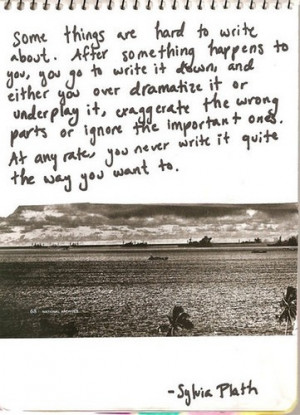 Some things are hard to write
about. After something happens to
you, you go to write it down, and
either you over dramatize it or
underplay it, exaggerate the wrong
parts or ignore the important ones.
At any rate, you never write it quite
the way you want to.
68 NATIONAL ARCHIVES
-Sylvia Plath